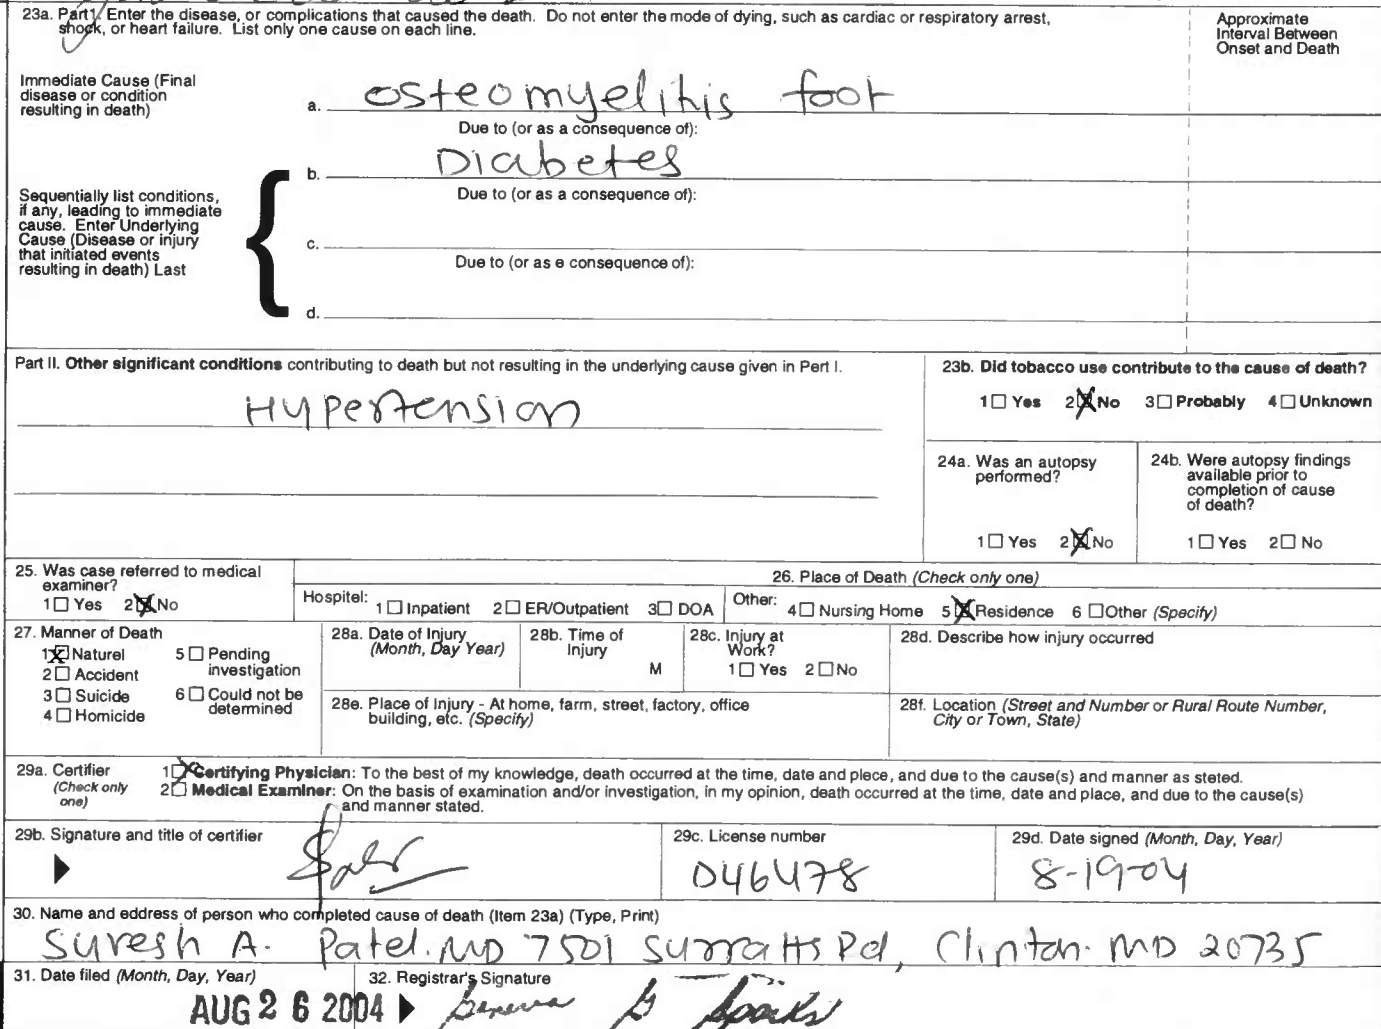 23a. Part1. Enter the disease, or complications that caused the death. Do not enter the mode of dying, such as cardiac or respiratory arrest,
shock, or heart failure. List only one cause on each line.
Approximate
Interval Between
Onset and Death
Immediate Cause (Final
disease or condition
resulting in death)
a. osteomyelitis foot
Due to (or as a consequence of):
b. Diabetes
Due to (or as a consequence of):
Sequentially list conditions,
if any, leading to immediate
cause. Enter Underlying
Cause (Disease or injury
that initiated events
resulting in death) Last
c.
Due to (or as e consequence of):
d.
Part II. Other significant conditions contributing to death but not resulting in the underlying cause given in Pert I.
Hypertension
23b. Did tobacco use contribute to the cause of death?
1 Yes 2 No 3 Probably 4 Unknown
24a. Was an autopsy
performed?
1 Yes 2 No
24b. Were autopsy findings
available prior to
completion of cause
of death?
1 Yes 2 No
25. Was case referred to medical
examiner?
1 Yes 2 No
26. Place of Death (Check only one)
Hospitel: 1 Inpatient 2 ER/Outpatient 3 DOA Other: 4 Nursing Home 5 Residence 6 Other (Specify)
27. Manner of Death
1 Naturel
2 Accident
3 Suicide
4 Homicide
5 Pending
investigation
6 Could not be
determined
28a. Date of Injury
(Month, Day Year)
28b. Time of
Injury
M
28c. Injury at
Work?
1 Yes 2 No
28d. Describe how injury occurred
28e. Place of Injury - At home, farm, street, factory, office
building, etc. (Specify)
28f. Location (Street and Number or Rural Route Number,
City or Town, State)
29a. Certifier
(Check only
one)
1 Certifying Physician: To the best of my knowledge, death occurred at the time, date and plece, and due to the cause(s) and manner as steted.
2 Medical Examiner: On the basis of examination and/or investigation, in my opinion, death occurred at the time, date and place, and due to the cause(s)
and manner stated.
29b. Signature and title of certifier
29c. License number
D46478
29d. Date signed (Month, Day, Year)
8-19-04
30. Name and eddress of person who completed cause of death (Item 23a) (Type, Print)
Suresh A. Patel. MD 7501 Surratts Rd, Clinton. MD 20735
31. Date filed (Month, Day, Year)
AUG 26 2004
32. Registrar's Signature
Geneva G Sparks